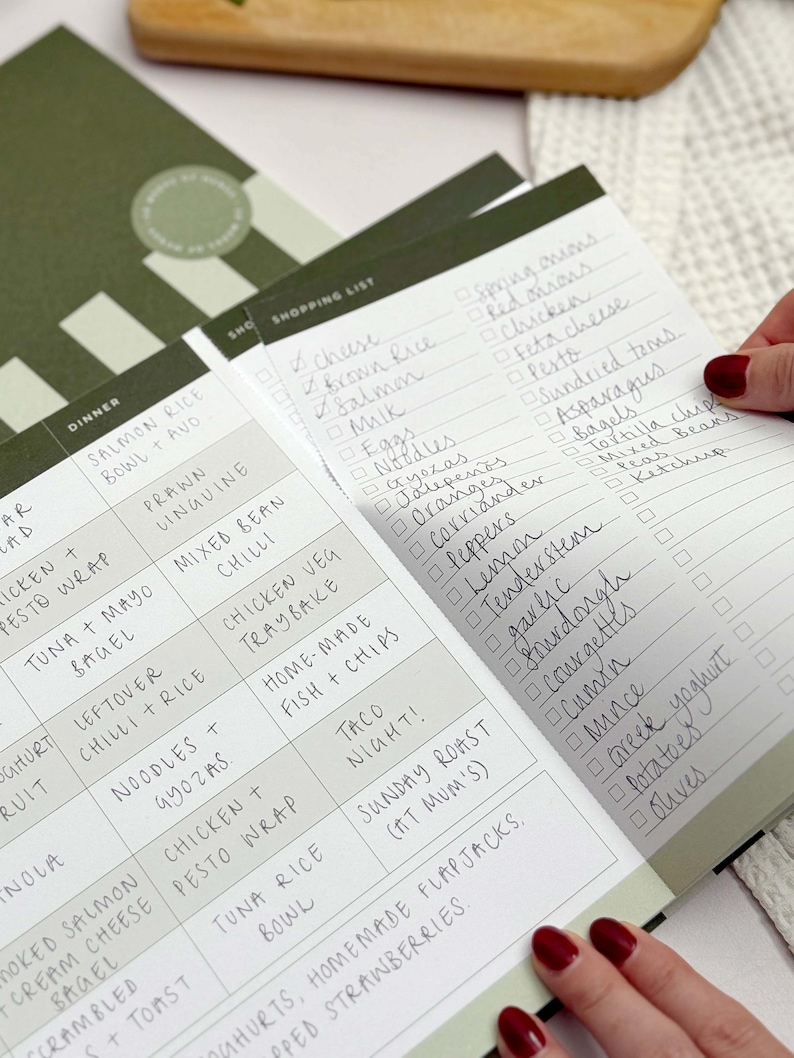 DINNER
SALMON RICE
BOWL + AVO
PRAWN
LINGUINE
PESTO WRAP
MIXED BEAN
CHILLI
TUNA + MAYO
BAGEL
CHICKEN VEG
TRAYBAKE
LEFTOVER
CHILLI + RICE
HOME-MADE
FISH + CHIPS
NOODLES +
GYOZAS.
TACO
NIGHT!
CHICKEN +
PESTO WRAP
SUNDAY ROAST
(AT MUM'S)
+ CREAM CHEESE
BAGEL
TUNA RICE
BOWL
+ TOAST
HOMEMADE FLAPJACKS,
STRAWBERRIES.
SHO
SHOPPING LIST
Cheese
Brown Rice
Salmon
Milk
Eggs
Noodles
Gyozas
Jalapeños
Oranges
Corriander
Peppers
Lemon
Tenderstem
garlic
Sourdough
Courgettes
Cumin
Mince
Greek yoghurt
Potatoes
Olives
Spring onions
Red onions
Chicken
Feta cheese
Pesto
Sundried toms
Asparagus
Bagels
Tortilla chips
Mixed Beans
Peas
Ketchup